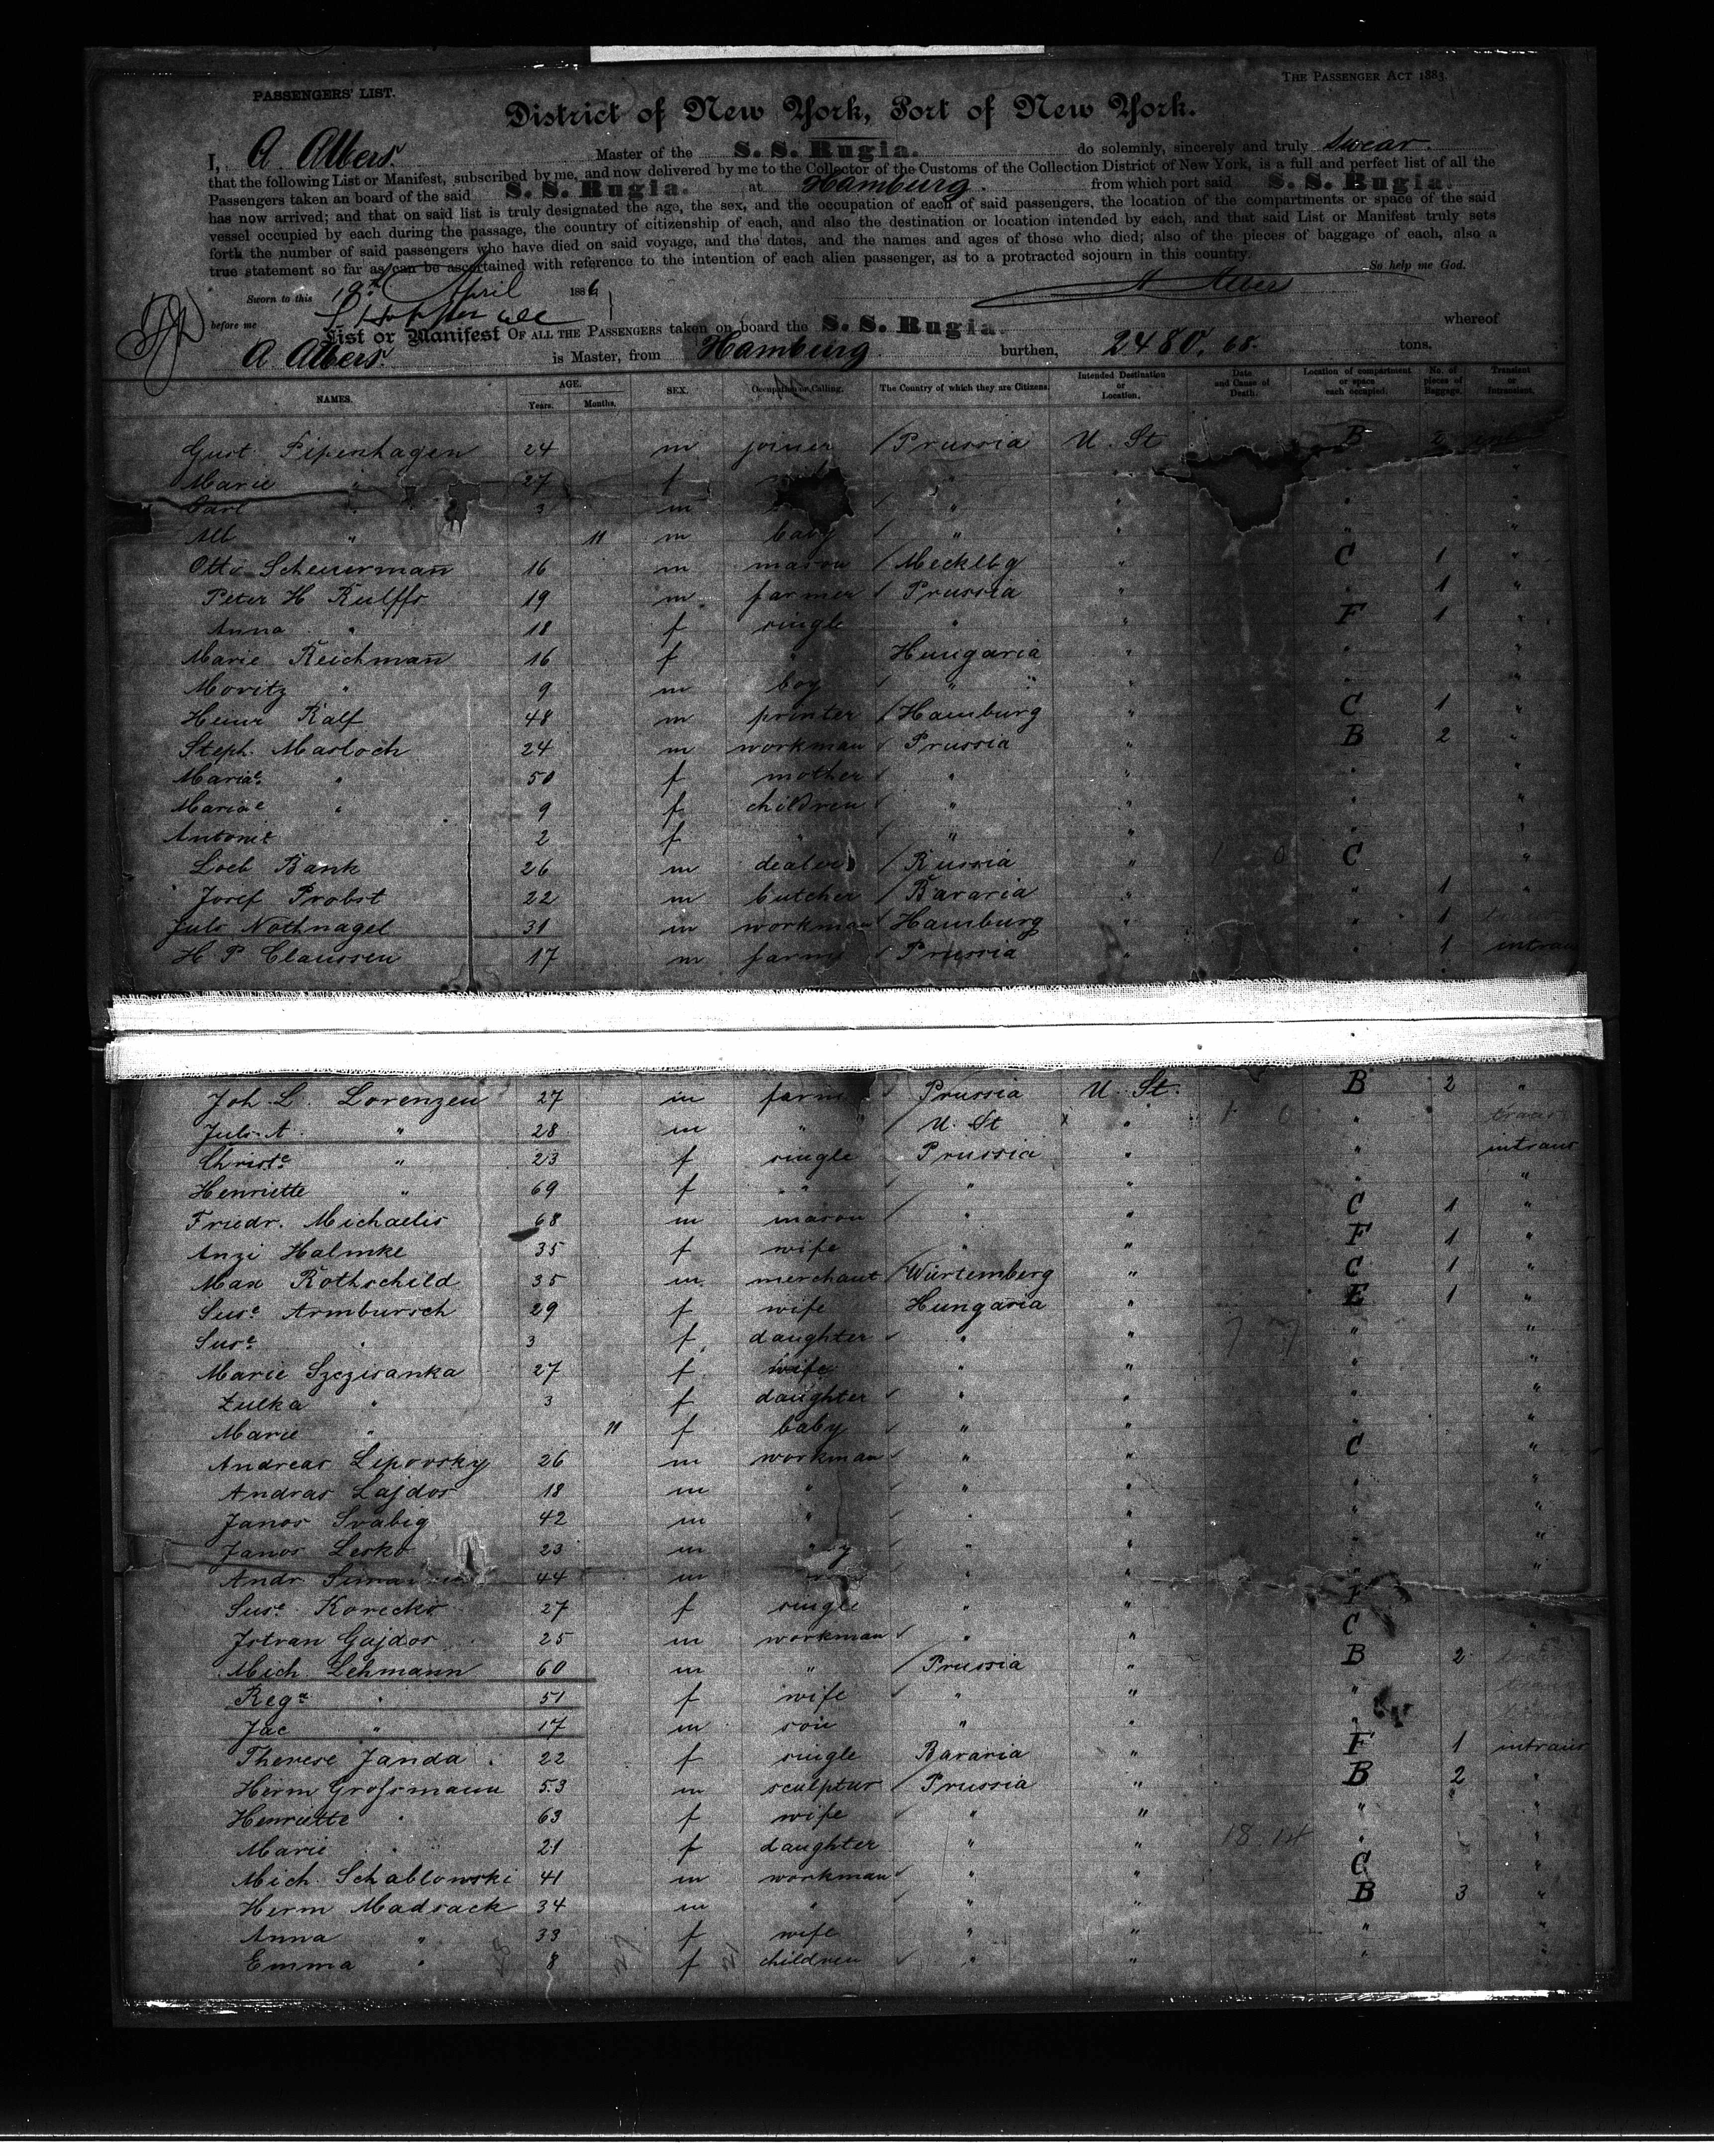 PASSENGERS' LIST.
THE PASSENGER ACT 1883.
District of New York, Port of New York.
I, A. Albers. Master of the S. S. Rugia. do solemnly, sincerely and truly swear.
that the following List or Manifest, subscribed by me, and now delivered by me to the Collector of the Customs of the Collection District of New York, is a full and perfect list of all the
Passengers taken an board of the said S. S. Rugia. at Hamburg. from which port said S. S. Rugia.
has now arrived; and that on said list is truly designated the age, the sex, and the occupation of each of said passengers, the location of the compartments or space of the said
vessel occupied by each during the passage, the country of citizenship of each, and also the destination or location intended by each, and that said List or Manifest truly sets
forth the number of said passengers who have died on said voyage, and the dates, and the names and ages of those who died; also of the pieces of baggage of each, also a
true statement so far as can be ascertained with reference to the intention of each alien passenger, as to a protracted sojourn in this country. So help me God.
Sworn to this 19th April 1886 A Albers
before me
List or Manifest OF ALL THE PASSENGERS taken on board the S. S. Rugia. whereof
A. Albers. is Master, from Hamburg. burthen, 2480. 68. tons.
NAMES. AGE. Years. Months. SEX. Occupation or Calling. The Country of which they are Citizens. Intended Destination or Location. Date and Cause of Death. Location of compartment or space each occupied. No. of pieces of Baggage. Transient or Intransient.
Gust. Pipenhagen 24 m joiner / Prussia U. St B 2
Marie " 27 f " " "
Carl " 3 m " " " "
Alb " 11 m baby " " " "
Otto Scheuerman̄ 16 m mason / Mecklbg " C 1 "
Peter H Rulffs 19 m farmer Prussia " 1 "
Anna " 18 f single " " F 1 "
Marie Reichman̄ 16 f " Hungaria " " "
Moritz " 9 m boy " " " "
Heinr Ralf 48 m printer / Hamburg " C 1 "
Steph. Marloch 24 m workman Prussia " B 2 "
Marie " 50 f mother " " " "
Marie " 9 f children " " " "
Antonie 2 f " " " " "
Loeb Bank 26 m dealer / Russia " C "
Josef Probst 22 m butcher / Bavaria " " 1 "
Juls Nothnagel 31 m workman Hamburg " " 1
H P Claussen 17 m farm Prussia " " 1 intran
Joh. L. Lorenzen 27 m farm Prussia U. St. B 2 "
Juls. A. " 28 m " / U. St x " " trans
Christe " 23 f single Prussia " " intrans
Henriette " 69 f " " " " "
Friedr. Michaelis 68 m mason / " " C 1 "
Anzi Halmke 35 f wife " " F 1 "
Max Rothschild 35 m merchant / Würtemberg " C 1 "
Suse Armbursch 29 f wife Hungaria " E 1 "
Suse " 3 f daughter " " " "
Marie Szczisanka 27 f wife " " " "
Zulka " 3 f daughter " " " "
Marie " 11 f baby " " " "
Andreas Lipovsky 26 m workman " " C "
Andras Lajdos 18 m " " " " "
Janos Svabig 42 m " " " " "
Janos Lesko 23 m " " " " "
Andr. 44 m " " " "
Suse Korecko 27 f single " " F
Istvan Gajdos 25 m workman " " C "
Mich Lehmann 60 m " / Prussia " B 2
Rege " 51 f wife " " "
Jac " 17 m son " " "
Therese Janda 22 f single Bavaria " F 1 intrans
Herm Grossmann 53 m sculptur / Prussia " B 2 "
Henriette " 63 f wife " " " "
Marie " 21 f daughter " " " "
Mich. Schablowski 41 m workman " " C "
Herm Madsack 34 m " " " B 3 "
Anna " 33 f wife " " " "
Emma " 8 f children " " " "